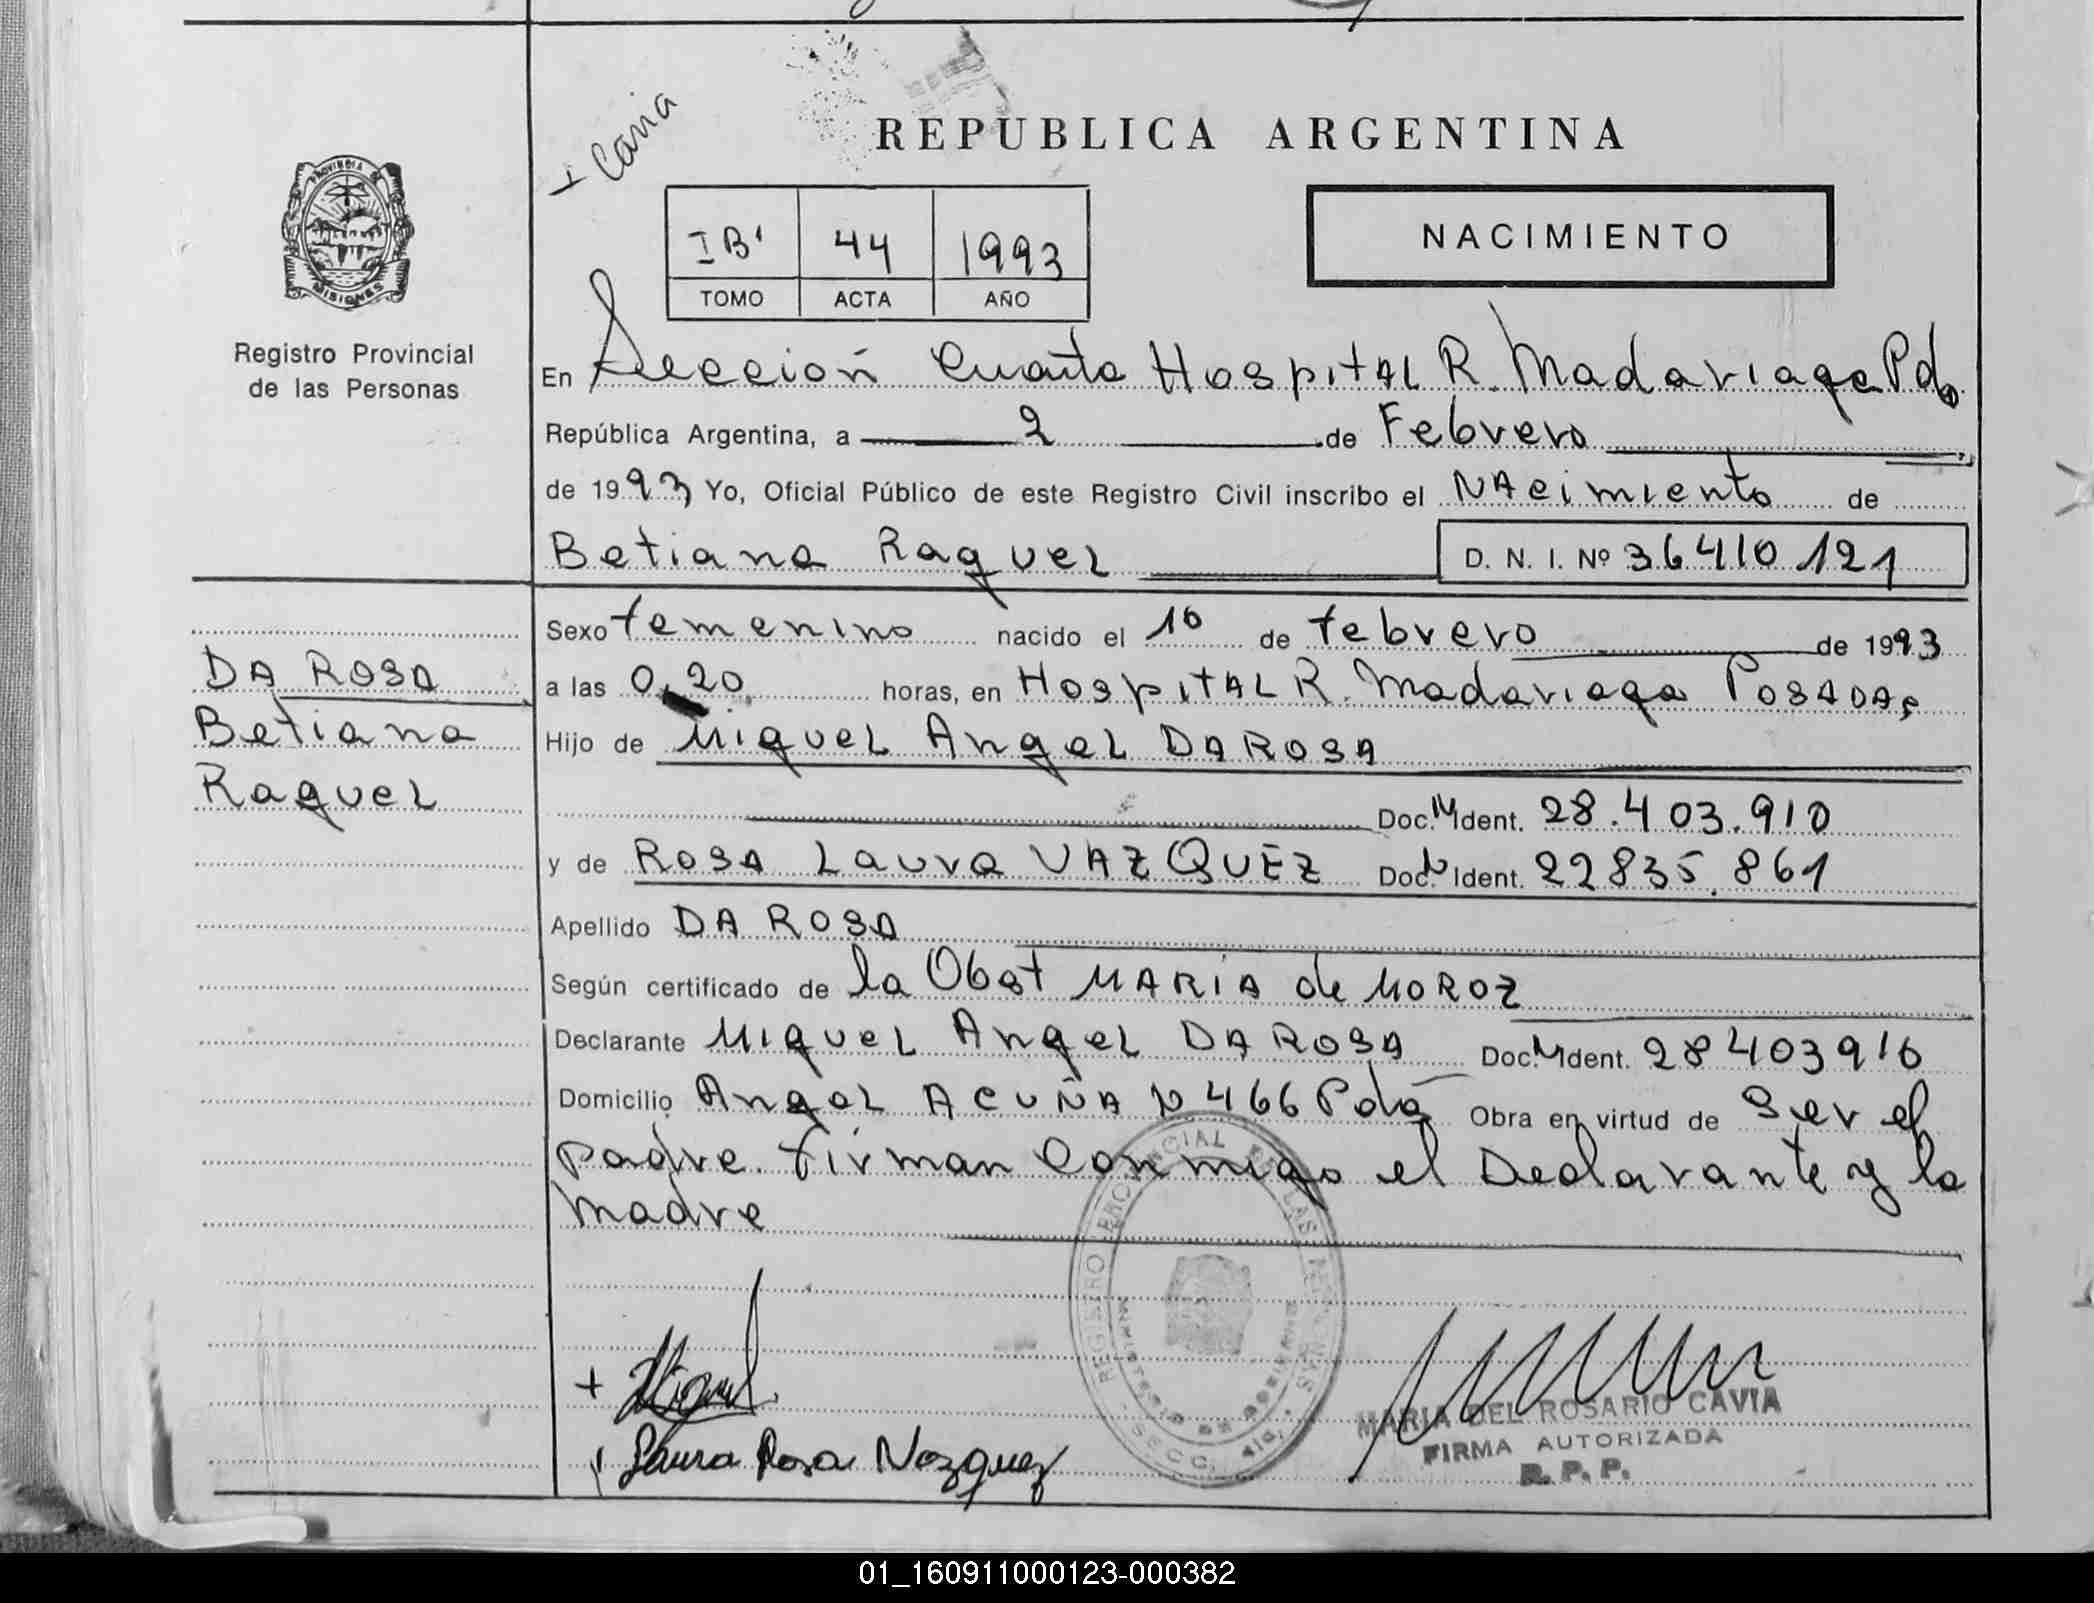 + Cavia
REPUBLICA ARGENTINA
IB' 44 1993
TOMO ACTA AÑO
NACIMIENTO
PROVINCIA DE
MISIONES
Registro Provincial
de las Personas
En Sección Cuarta Hospital R. Madariaga Pdas
República Argentina, a 2 de Febrero
de 1993 Yo, Oficial Público de este Registro Civil inscribo el NAcimiento de
Betiana Raquel D. N. I. Nº 36410121
Sexo femenino nacido el 1º de febrero de 1993
a las 0,20 horas, en Hospital R. Madariaga Posadas
Hijo de Miguel Angel DA ROSA
Doc. N Ident. 28.403.910
y de Rosa Laura VAZQUEZ Doc. N Ident. 22835.861
Apellido DA ROSA
Según certificado de la Obst MARIA de MOROZ
Declarante Miguel Angel DA ROSA Doc. N Ident. 28403910
Domicilio Angel ACUÑA N 466 Pdas Obra en virtud de Ser el
padre. firman Conmigo el Declarante y la
madre
DA ROSA
Betiana
Raquel
REGISTRO PROVINCIAL DE LAS PERSONAS
MINISTERIO DE GOBIERNO
SECC. 4ta.
+ Miguel
Laura Rosa Vazquez
MARIA DEL ROSARIO CAVIA
FIRMA AUTORIZADA
R. P. P.
01_160911000123-000382